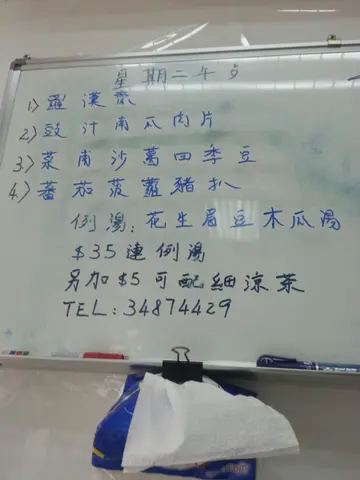 星期二午歺
1) 羅漢齋
2) 豉汁南瓜肉片
3) 菜甫沙葛四季豆
4) 蕃茄菠蘿豬扒
例湯：花生眉豆木瓜湯
$35連例湯
另加$5可配細涼茶
TEL：34874429